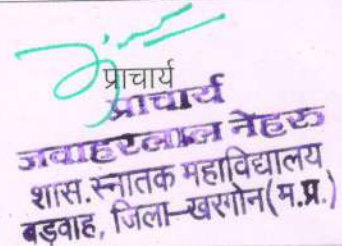 प्राचार्य
प्राचार्य
जवाहरलाल नेहरु
शास.स्नातक महाविद्यालय
बड़वाह, जिला-खरगोन(म.प्र.)